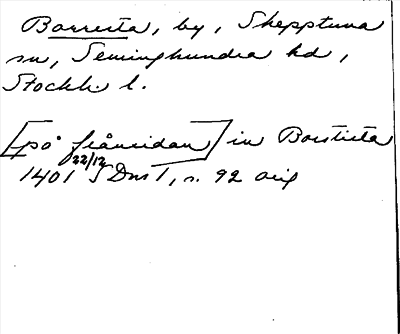 Borresta, by, Skepptuna
sn, Seminghundra hd,
Stockh. l.
[på frånsidan] in Borstista
22/12
1401 SDns 1, s. 92 orig